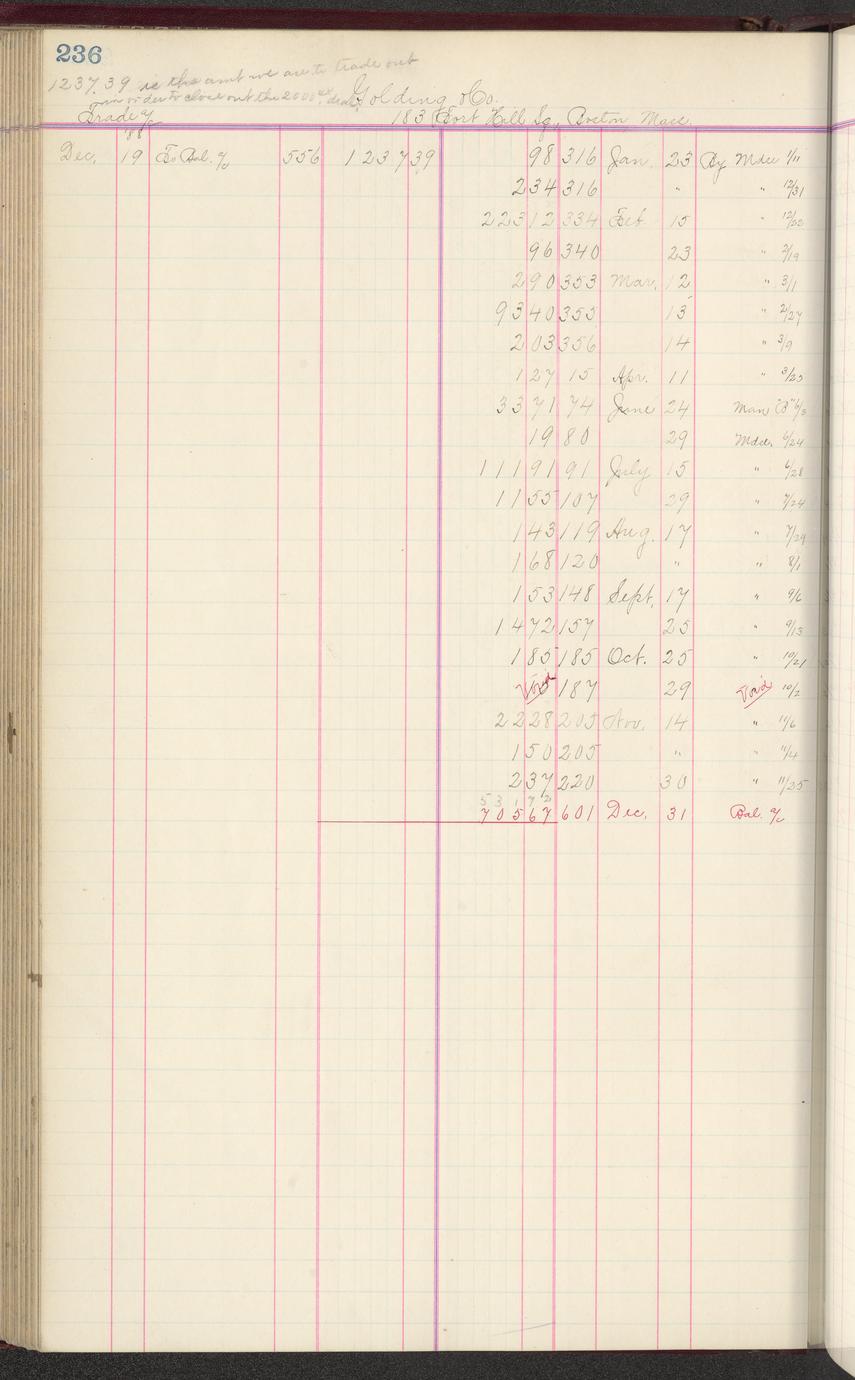 236
1237.39 is the amt we are to trade out
in order to close out the 2000 deal.
Golding & Co.
Trade a/c
183 Fort Hill Sq., Boston Mass.
'88
Dec. 19 To Bal. a/c 556 1237 39 98 316 Jan. 23 By Mdse 1/11
2 34 316 " " 12/31
223 12 334 Feb 15 " 12/22
96 340 23 " 2/19
2 90 353 Mar. 12 " 3/1
93 40 355 13 " 2/27
2 03 356 14 " 3/9
1 27 15 Apr. 11 " 3/25
33 71 74 June 24 Man "B" 6/3
19 80 29 Mdse. 6/24
111 91 91 July 15 " 6/28
11 55 107 29 " 7/24
1 43 119 Aug. 17 " 7/29
1 68 120 " " 8/1
1 53 148 Sept. 17 " 9/6
14 72 157 25 " 9/13
1 85 185 Oct. 25 " 10/21
Void 187 29 Void 10/2
22 28 205 Nov. 14 " 11/6
1 50 205 " " 11/4
2 37 220 30 " 11/25
531 72
705 67 601 Dec. 31 Bal. a/c